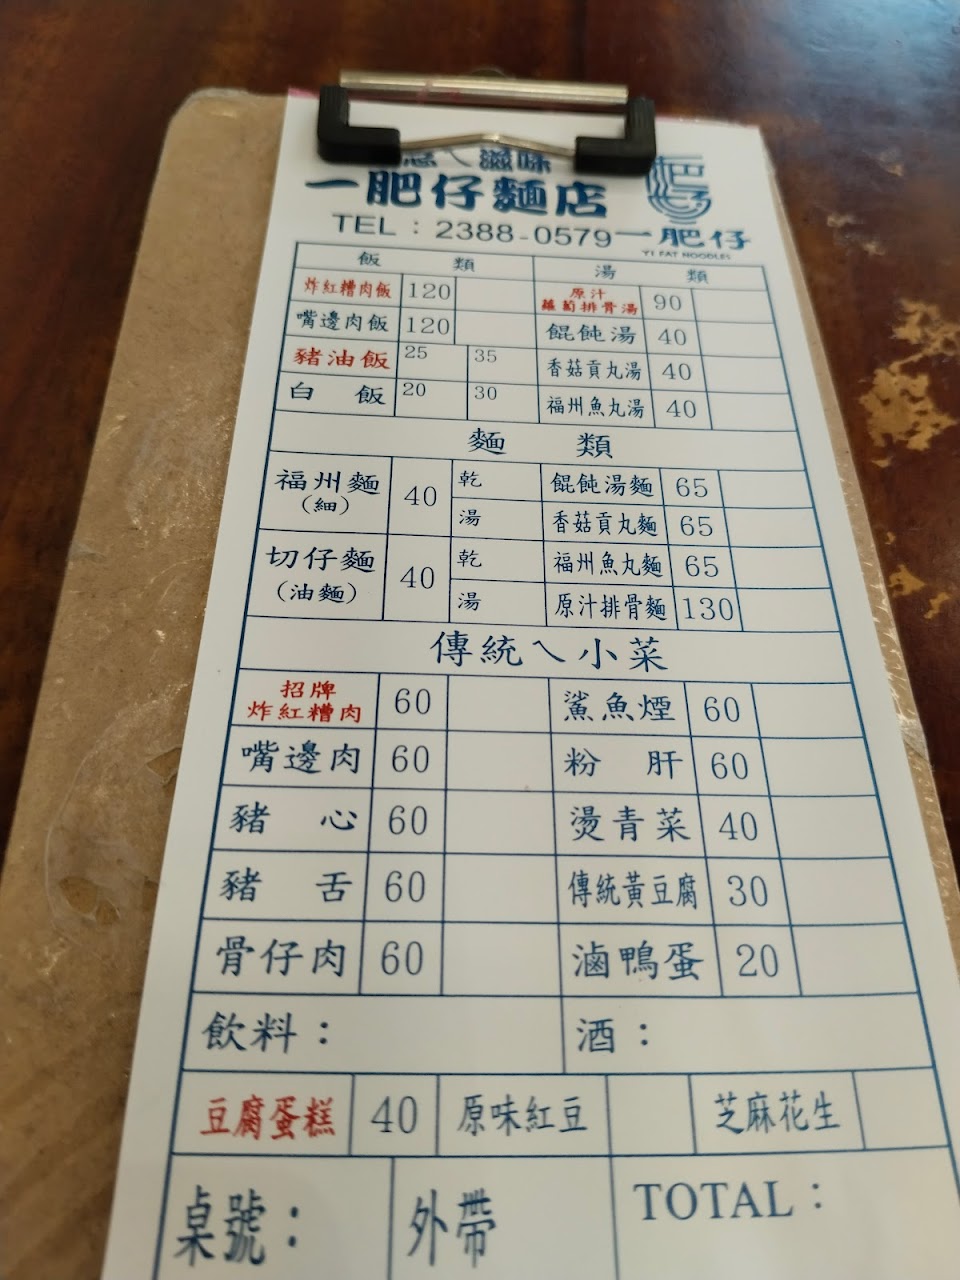 滋味
一肥仔麵店
TEL：2388-0579
一肥仔
YI FAT NOODLES
飯 類 湯 類
炸紅糟肉飯 120 原汁蘿蔔排骨湯 90
嘴邊肉飯 120 餛飩湯 40
豬油飯 25 35 香菇貢丸湯 40
白 飯 20 30 福州魚丸湯 40
麵 類
福州麵(細) 40 乾 餛飩湯麵 65
湯 香菇貢丸麵 65
切仔麵(油麵) 40 乾 福州魚丸麵 65
湯 原汁排骨麵 130
傳統ㄟ小菜
招牌炸紅糟肉 60 鯊魚煙 60
嘴邊肉 60 粉 肝 60
豬 心 60 燙青菜 40
豬 舌 60 傳統黃豆腐 30
骨仔肉 60 滷鴨蛋 20
飲料： 酒：
豆腐蛋糕 40 原味紅豆 芝麻花生
桌號： 外帶 TOTAL：